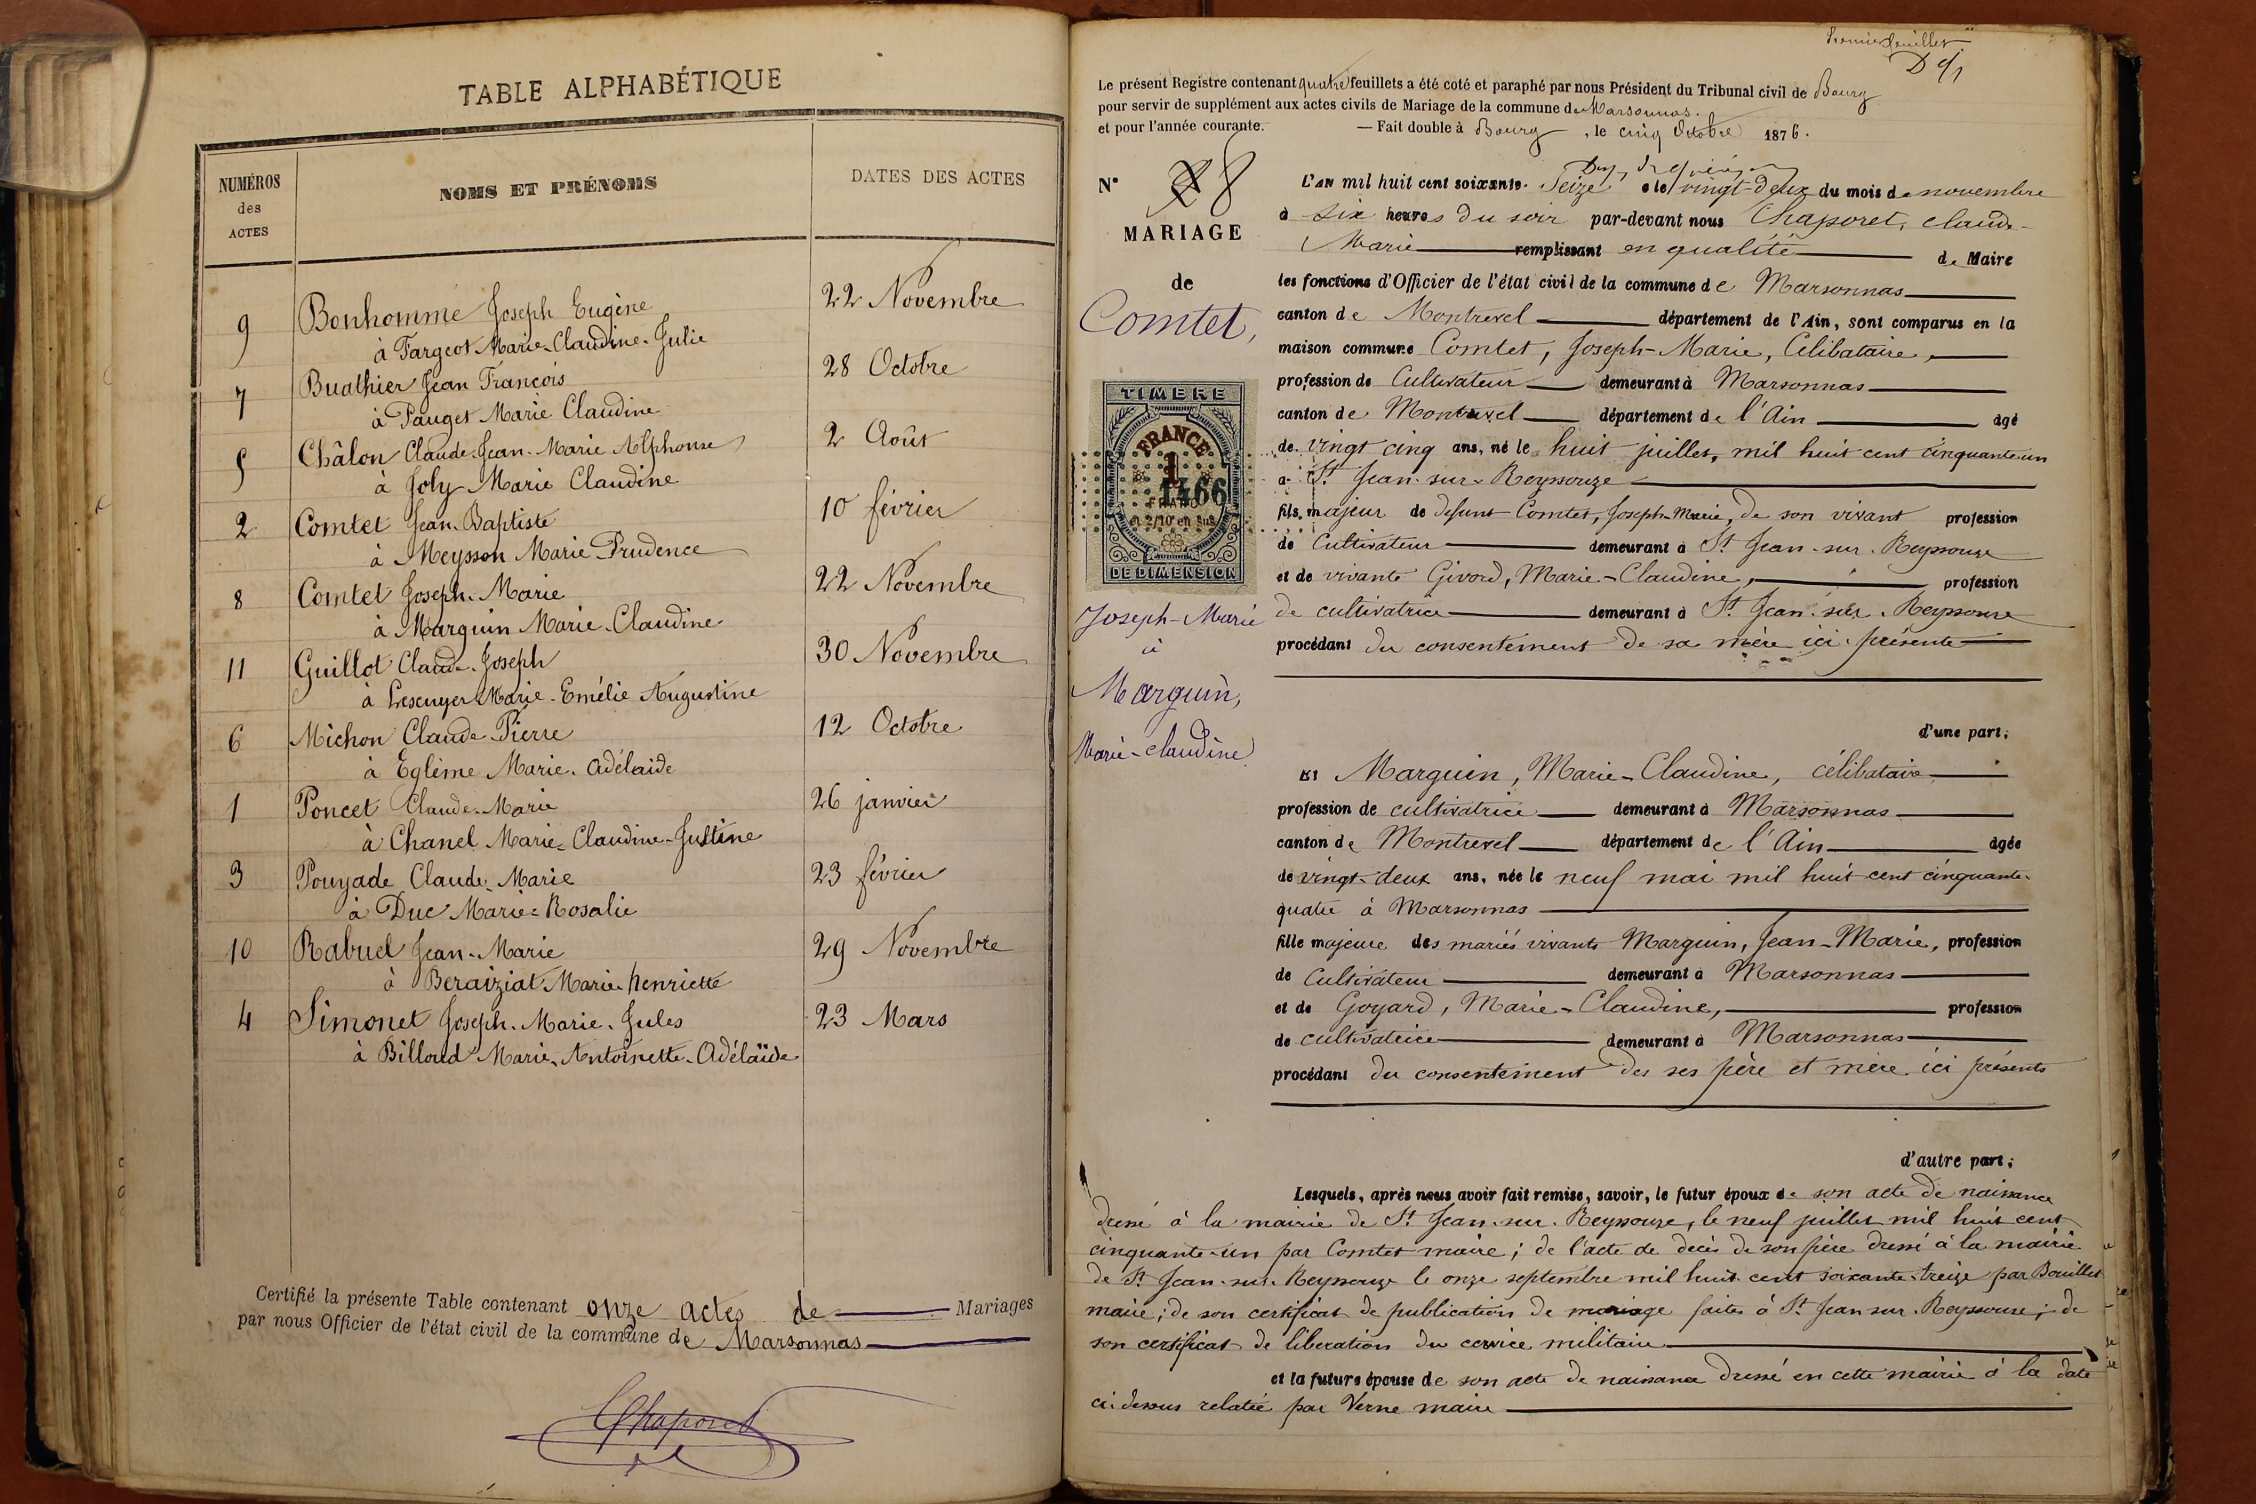 TABLE ALPHABÉTIQUE
NUMÉROS
des
ACTES
NOMS ET PRÉNOMS
DATES DES ACTES
9 Bonhomme Joseph Eugène 22 Novembre
à Fargeot Marie-Claudine-Julie
7 Buathier Jean François 28 Octobre
à Pauget Marie Claudine
5 Châlon Claude-Jean-Marie Alphonse 2 Août
à Joly Marie Claudine
2 Comtet Jean-Baptiste 10 février
à Meysson Marie Prudence
8 Comtet Joseph-Marie 22 Novembre
à Marguin Marie-Claudine
11 Guillot Claude-Joseph 30 Novembre
à Lescuyer Marie-Emélie Augustine
6 Michon Claude-Pierre 12 Octobre
à Eglème Marie-Adélaide
1 Poncet Claude-Marie 26 janvier
à Chanel Marie-Claudine-Justine
3 Pouyade Claude-Marie 23 février
à Duc Marie-Rosalie
10 Rabuel Jean-Marie 29 Novembre
à Beraiziat Marie-henriette
4 Simonet Joseph-Marie-Jules 23 Mars
à Billoud Marie-Antoinette-Adélaïde
Certifié la présente Table contenant onze actes de Mariages
par nous Officier de l'état civil de la commune de Marsonnas
Chaporet
Premier feuillet
Le présent Registre contenant quatre feuillets a été coté et paraphé par nous Président du Tribunal civil de Bourg
pour servir de supplément aux actes civils de Mariage de la commune de Marsonnas.
et pour l'année courante. — Fait double à Bourg, le cinq Octobre 1876.
N° 8
MARIAGE
de
Comtet,
TIMBRE
FRANCE
1
1466
FRANC
et 2/10 en sus
DE DIMENSION
Joseph-Marie
à
Marguin,
Marie-claudine
L'AN mil huit cent soixante-Seize e le vingt-deux du mois de novembre
à six heures du soir par-devant nous Chaporet, claude-
Marie remplissant en qualité de Maire
les fonctions d'Officier de l'état civil de la commune de Marsonnas
canton de Montrevel département de l'Ain, sont comparus en la
maison commune Comtet, Joseph-Marie, Célibataire,
profession de Cultivateur demeurant à Marsonnas
canton de Montrevel département de l'Ain âgé
de vingt cinq ans, né le huit juillet, mil huit cent cinquante-un
à St Jean-sur-Reyssouze
fils majeur de défunt Comtet, Joseph-Marie, de son vivant profession
de Cultivateur demeurant à St Jean-sur-Reyssouze
et de vivante Givord, Marie-Claudine, profession
de cultivatrice demeurant à St Jean-sur-Reyssouze
procédant du consentement de sa mère ici présente
d'une part;
Et Marguin, Marie-Claudine, célibataire
profession de cultivatrice demeurant à Marsonnas
canton de Montrevel département de l'Ain âgée
de vingt-deux ans, née le neuf mai mil huit cent cinquante-
quatre à Marsonnas
fille majeure des mariés vivants Marguin, Jean-Marie, profession
de Cultivateur demeurant à Marsonnas
et de Goyard, Marie-Claudine, profession
de cultivatrice demeurant à Marsonnas
procédant du consentement des ses père et mère ici présents
d'autre part;
Lesquels, après nous avoir fait remise, savoir, le futur époux de son acte de naissance
dressé à la mairie de St Jean-sur-Reyssouze, le neuf juillet mil huit cent
cinquante-un par Comtet maire; de l'acte de décès de son père dressé à la mairie
de St Jean-sur-Reyssouze le onze septembre mil huit cent soixante-treize par Bouillet
maire; de son certificat de publication de mariage faites à St Jean sur-Reyssouze; de
son certificat de libération du cervice militaire
et la future épouse de son acte de naissance dressé en cette mairie à la date
ci-dessus relatée par Verne maire